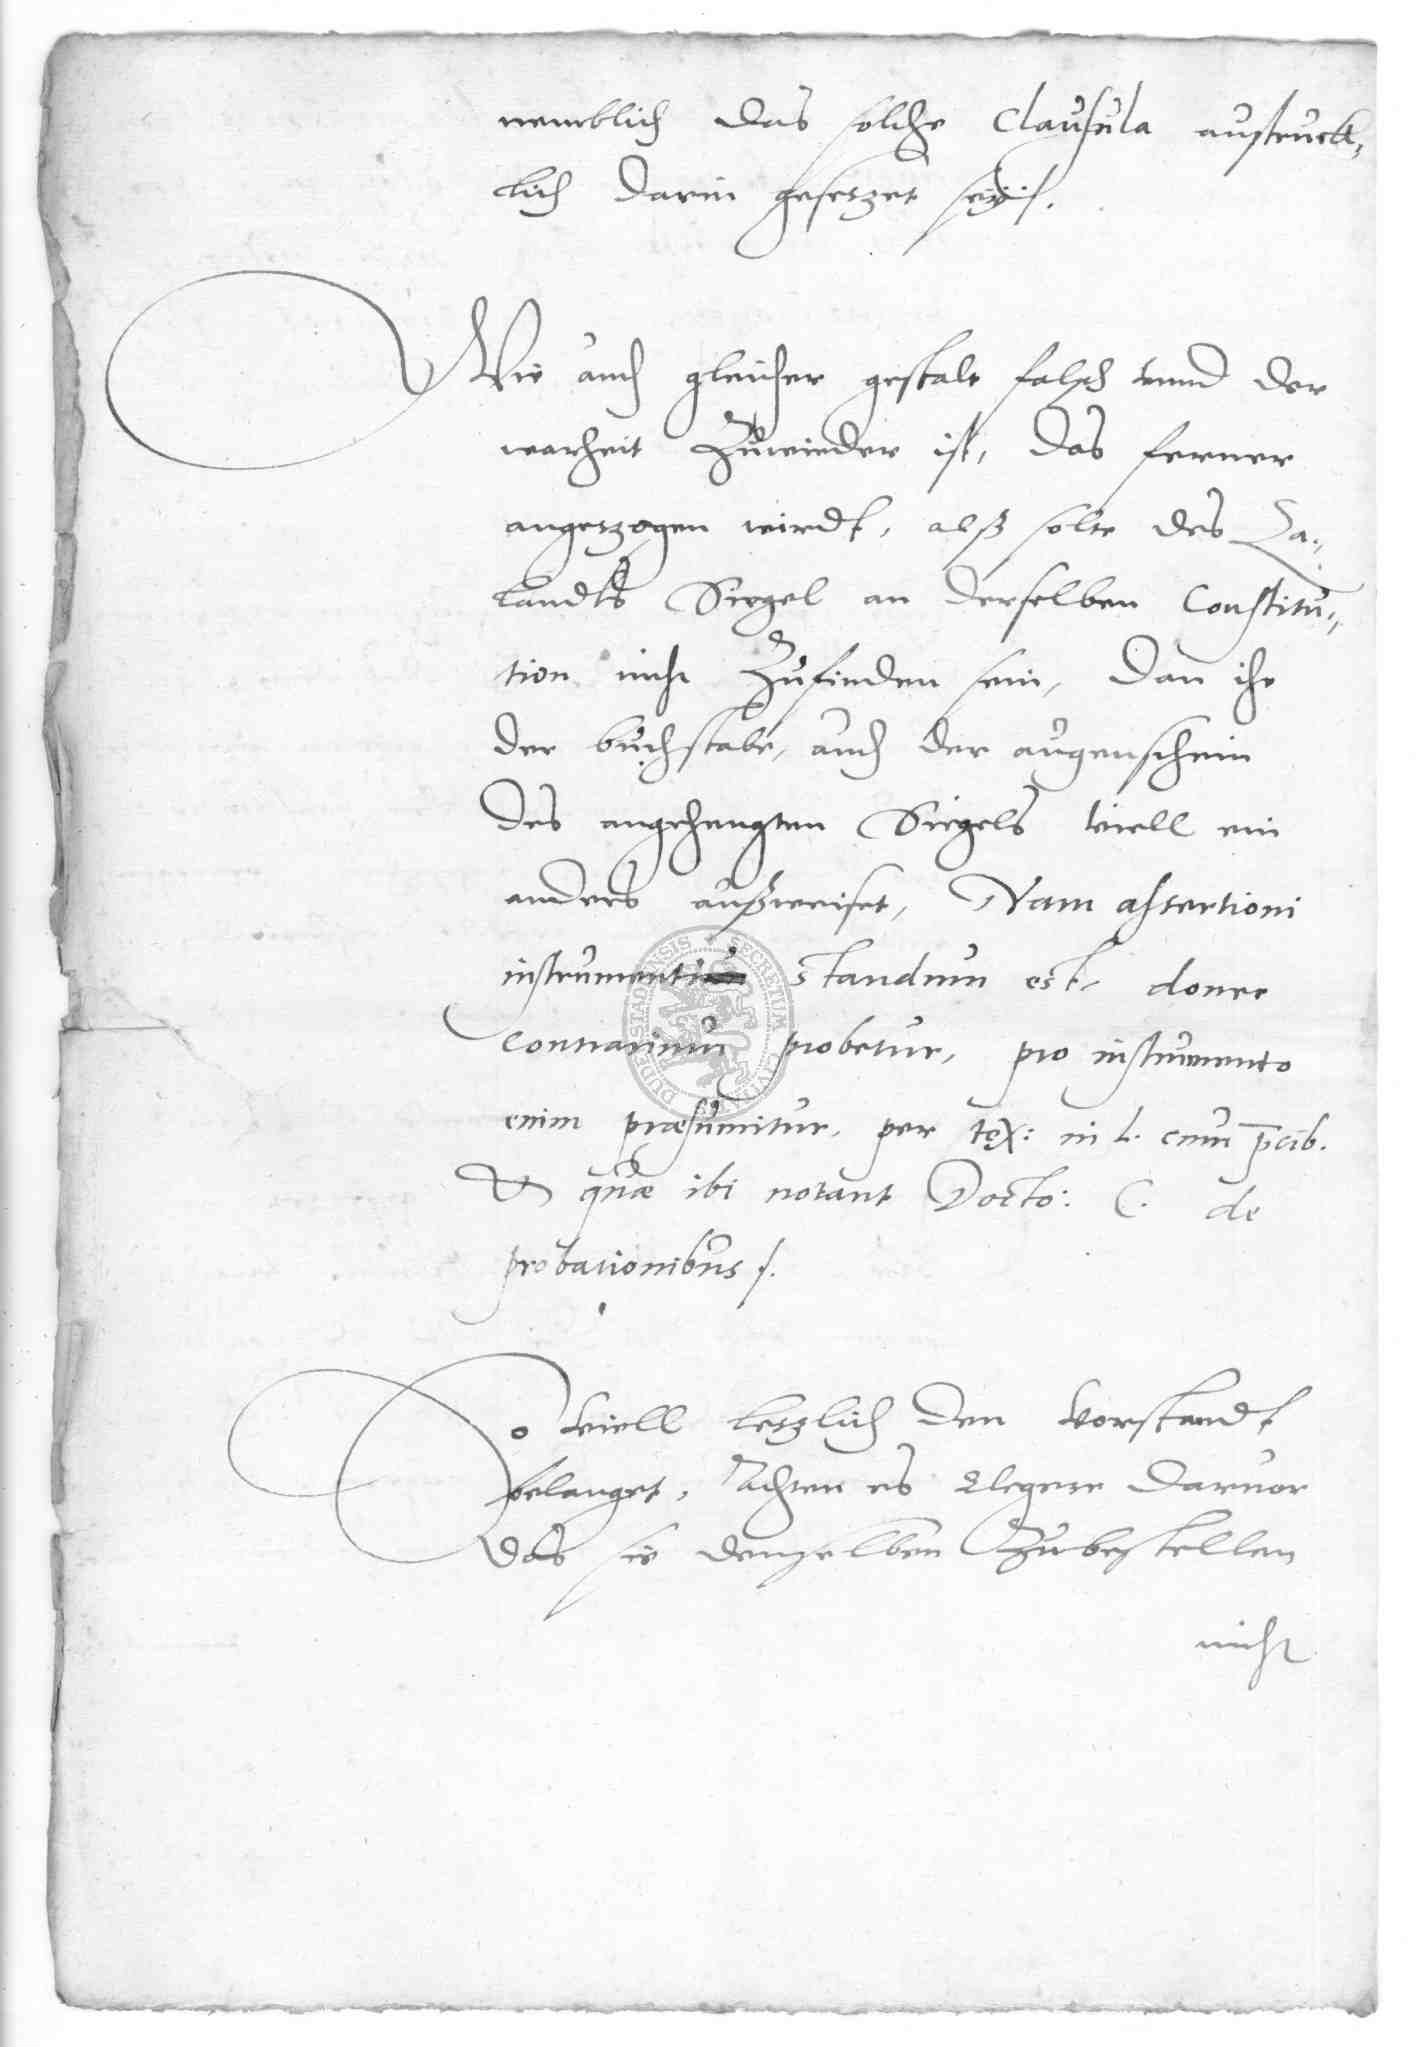 nemblich das solche Clausula austruck,
lich darin gesetzet sey.
Wie auch gleicher gestalt falsch vnnd der
warheit Zuwieder ist, das ferner
angetzogen wirdt, alß solte des La,,
landts Siegel an derselben Constitu,,
tion nicht Zufinden sein, Dan ihe
der buchstabe, auch der augenschein
des angehengten Siegels viell ein
anders außweiset, Nam assertioni
instrumenti standum est, donec
contrarium probetur, pro instrumento
enim præsumitur, per tex: in l. cum p̄cib.
& quæ ibi notant Docto: C. de
probationibus /.
So viell letzlich den Vorstandt
belanget, Achten es Clegere daruor
das sie denselben Zubestellen
nicht
SECRETUM CIVITATIS DUDERSTADENSIS